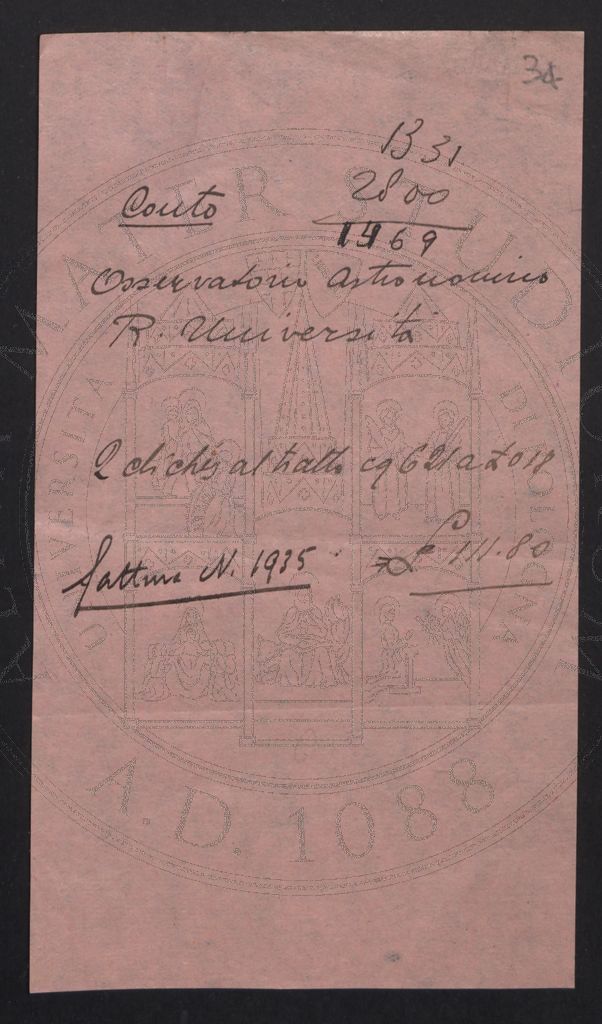 34
1331
2800
Conto
1469
Osservatorio Astronomico
R. Università
2 clichés al tratto cq 621 a
£ 111.80
fattura N. 1935
ALMA MATER STUDIORUM
UNIVERSITÀ DI BOLOGNA
A.D. 1088